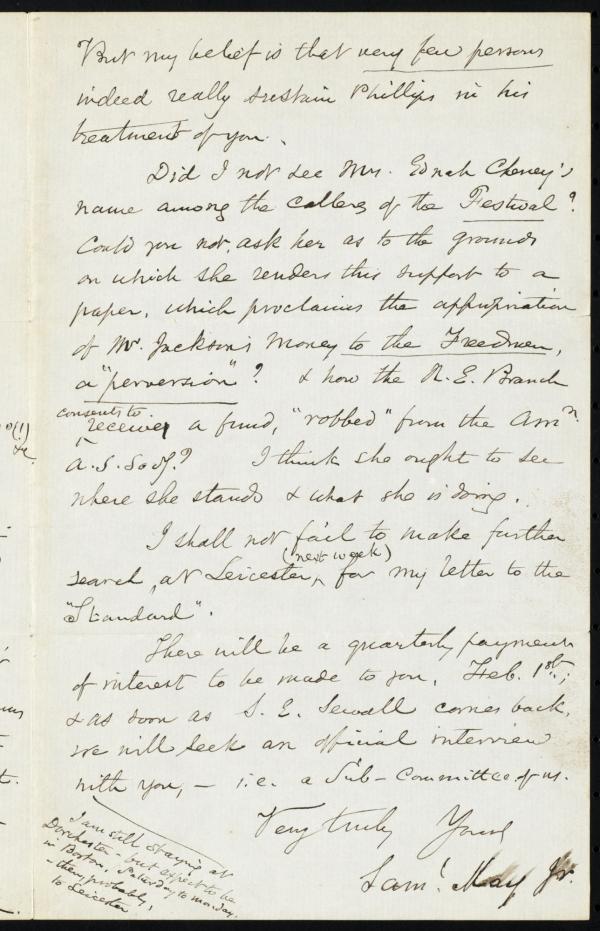 But my belief is that very few persons
indeed really sustain Phillips in his
treatment of you.
Did I not see Mrs. Ednah Cheney's
name among the callers of the Festival?
Could you not, ask her as to the grounds
on which she renders this support to a
paper, which proclaims the appropriation
of Mr. Jackson's money to the Freedmen,
a "perversion"? & how the N. E. Branch
consents to
receive a fund, "robbed" from the Amn.
A. S. Socy.? I think she ought to see
where she stands & what she is doing.
I shall not fail to make further
(next week)
search, at Leicester, for my letter to the
"Standard".
There will be a quarterly payment
of interest to be made to you, Feb. 1st;
& as soon as S. E. Sewall comes back,
we will seek an official interview
with you, – i.e. a Sub-Committee of us.
Very truly Yours
Saml. May Jr.
I am still staying at
Dorchester – but expect to be
in Boston, Saturday to Monday,
– then, probably,
to Leicester